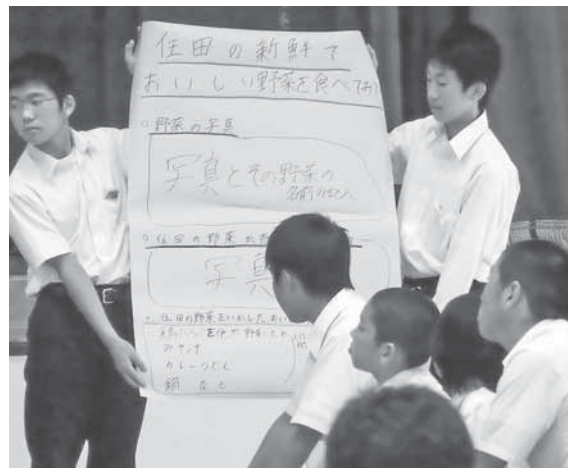 住田の新鮮で
おいしい野菜を食べてみ
○野菜の写真
写真とその野菜の
名前の記入
○住田の野菜が
写真
住田の野菜をいかした
カレーうどん
鍋 など